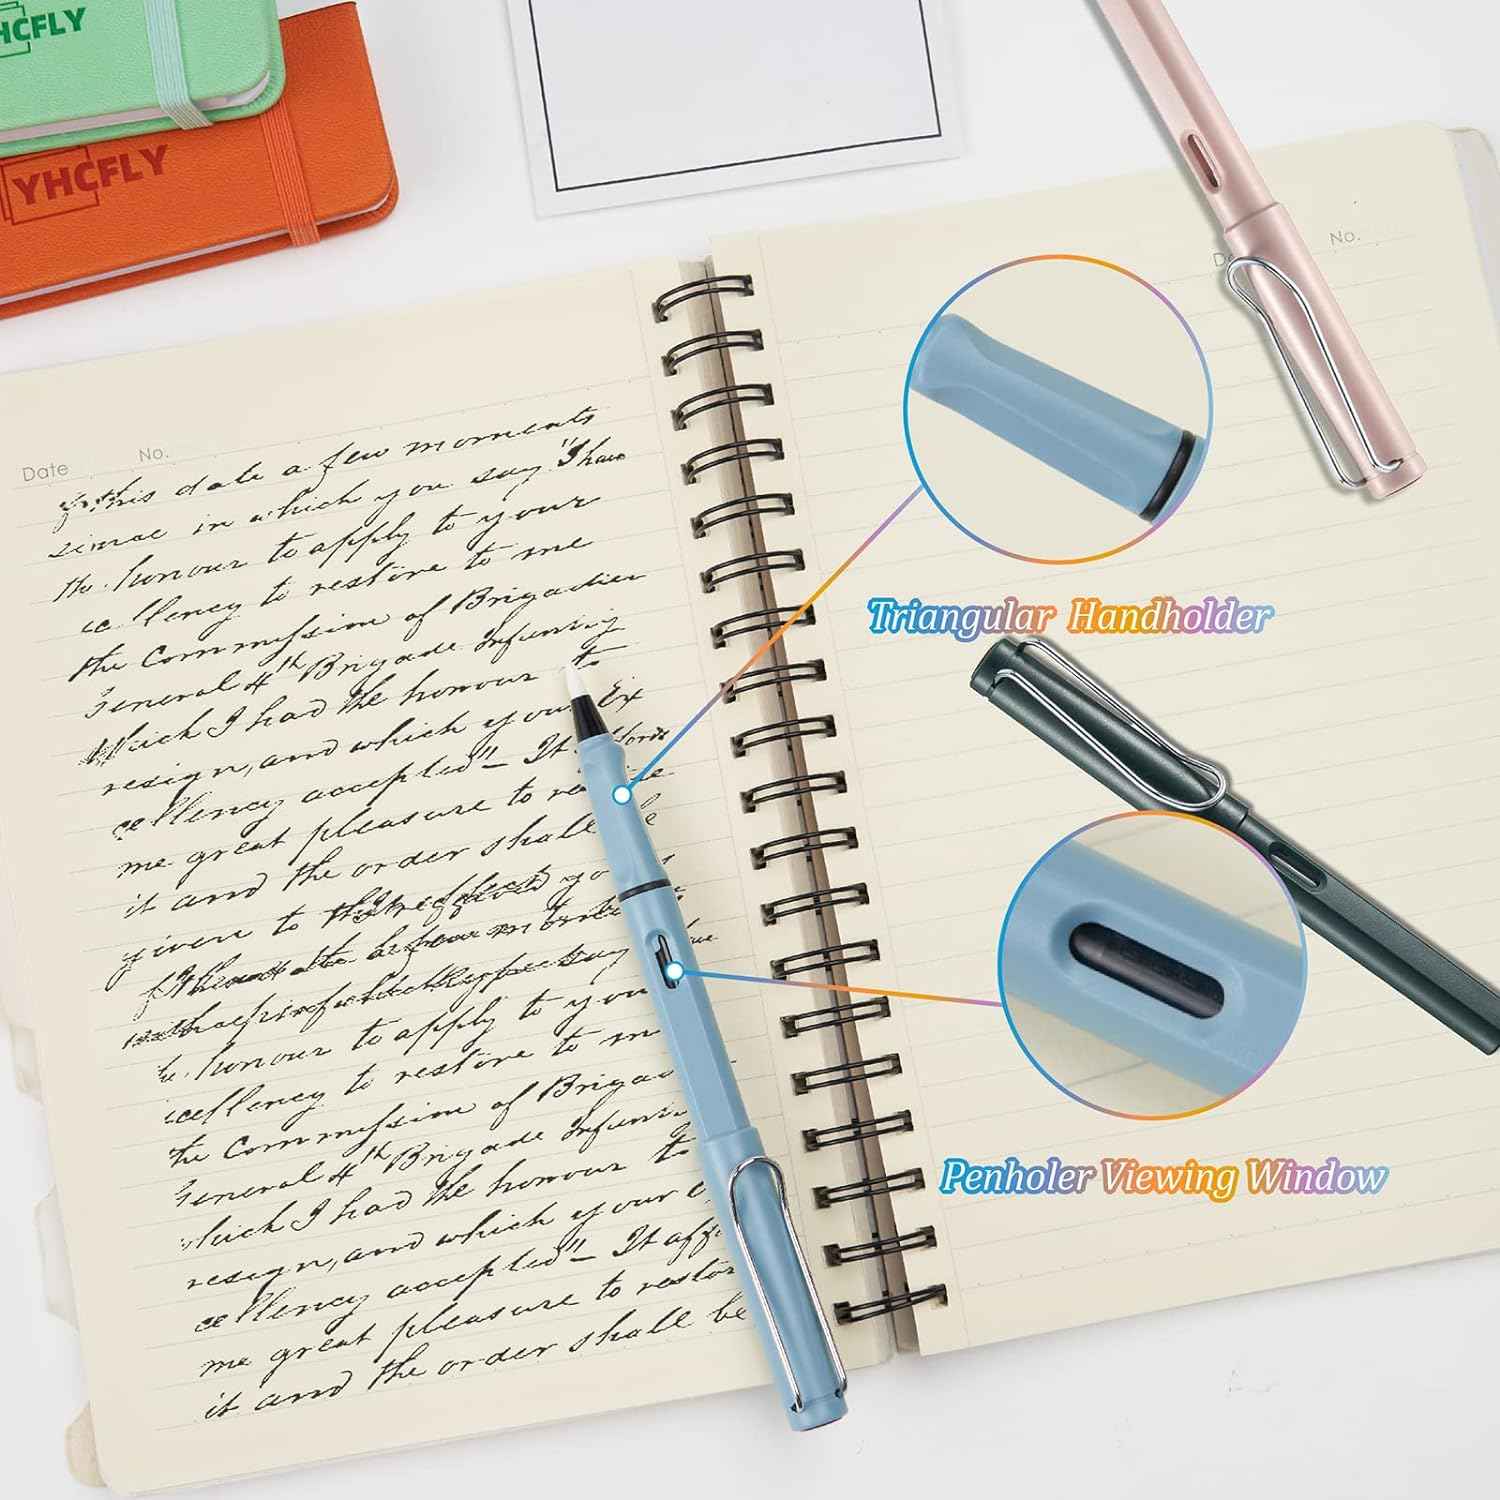 HCFLY
YHCFLY
Date No.
this date a few moments
since in which you say "I have
the honour to apply to your
cellency to restore to me
the Commission of Brigadier
General 4th Brigade Infantry
which I had the honour to
resign, and which your Ex
cellency accepted" — It affords
me great pleasure to
it and the order shall be
given to
to apply to you
honour to apply to you
cellency to restore to m
the Commission of Brigad
General 4th Brigade Infant
which I had the honour to
resign, and which your
cellency accepted" — It aff
me great pleasure to restor
it and the order shall be
No.
Triangular Handholder
Penholer Viewing Window